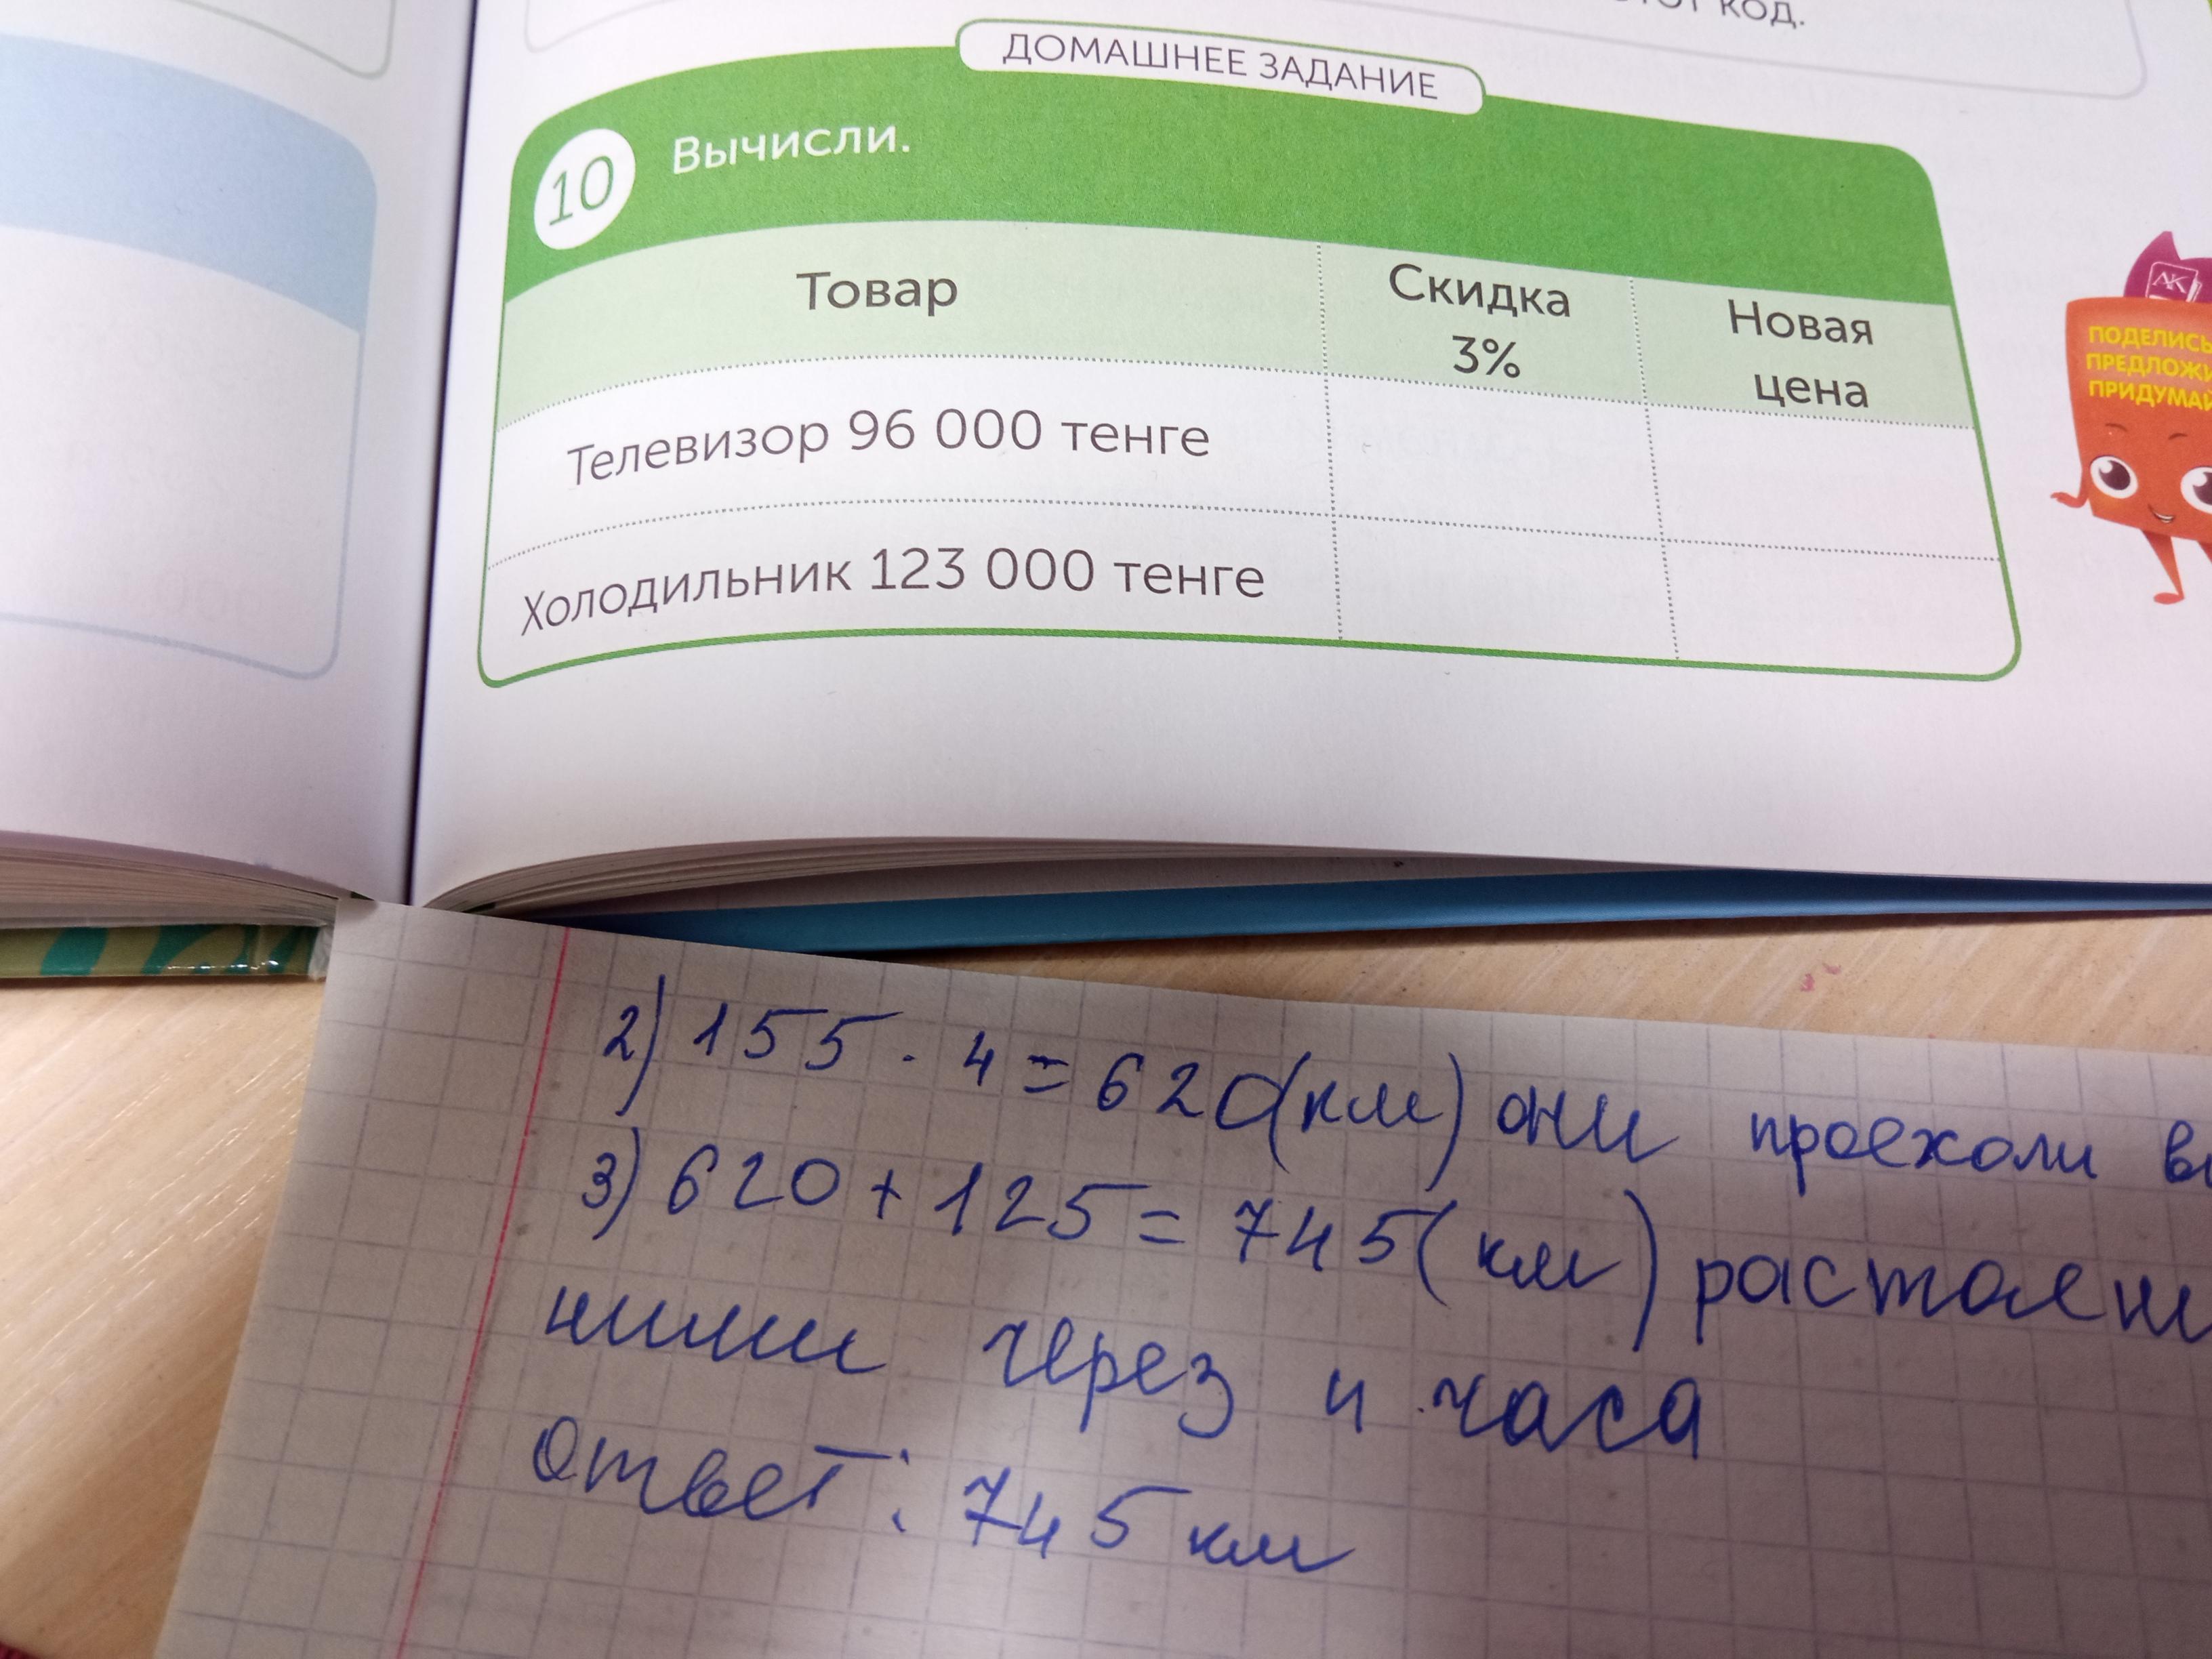 код.
ДОМАШНЕЕ ЗАДАНИЕ
10 Вычисли.
Товар
Скидка
3%
Новая
цена
Телевизор 96 000 тенге
Холодильник 123 000 тенге
АК
ПОДЕЛИСЬ
ПРЕДЛОЖИ
ПРИДУМАЙ
2) 155 · 4 = 620(км) они проехали
3) 620 + 125 = 745(км)
ними через 4 часа
ответ: 745 км